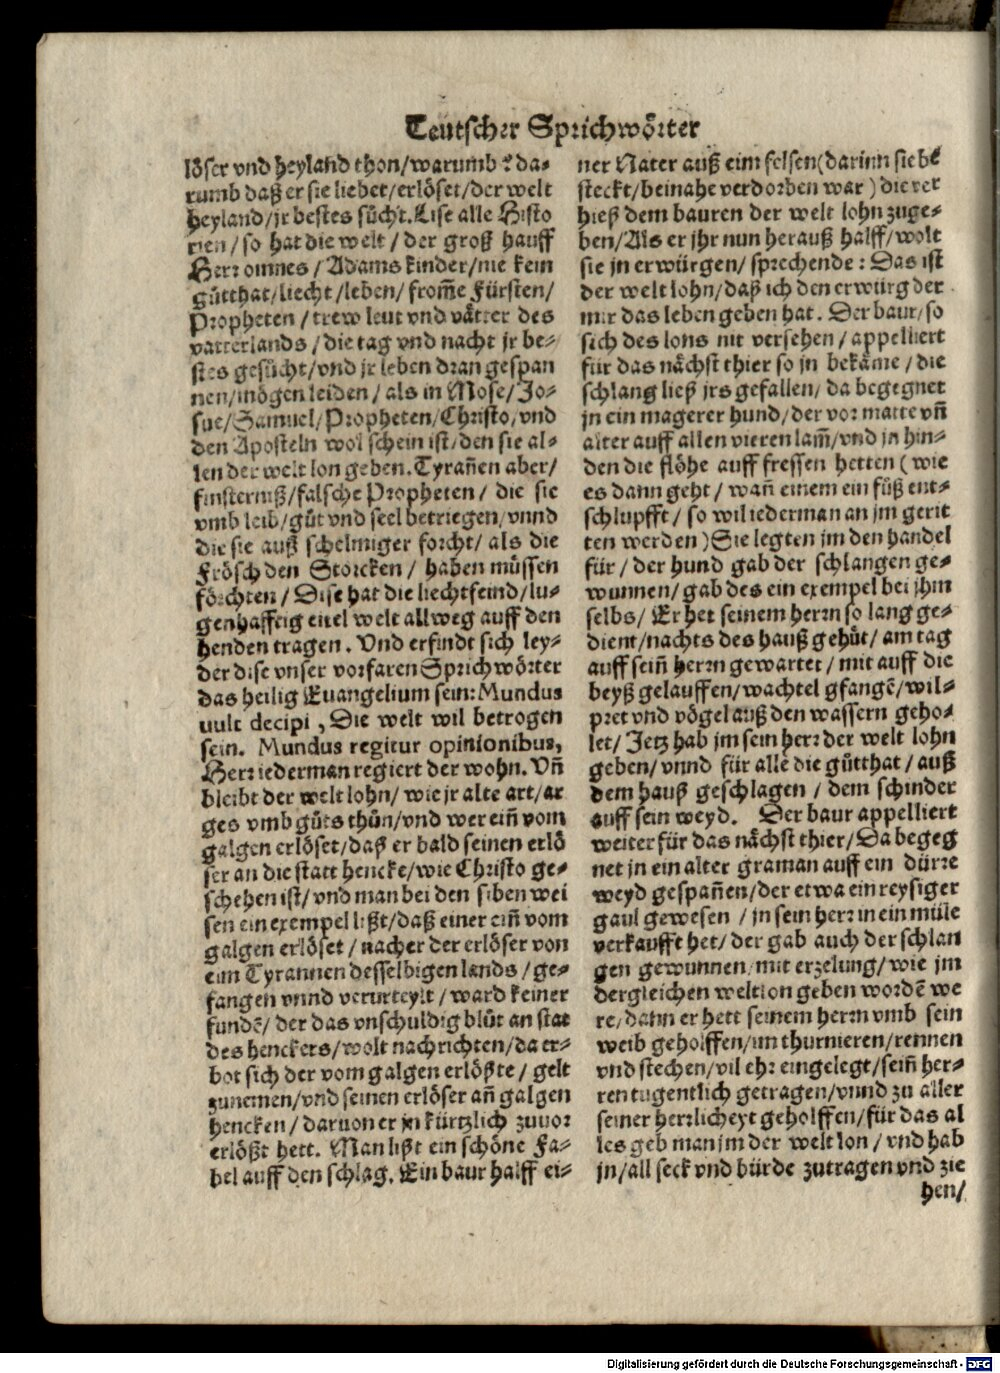 Teutscher Sprichwörter
löser vnd heyland thon/warumb? da-
rumb daß er sie liebet/erlöset/der welt
heyland/jr bestes sůcht. Lise alle Histo
rien/so hat die welt/der groß hauff
Herr omnes/Adams kinder/nie kein
gůtthat/liecht/leben/from̃e Fürsten/
Propheten/trew leut vnd våtter des
vatterlands/die tag vnd nacht jr be-
stes gesůcht/vnd jr leben dran gespan
nen/mögen leiden/als in Mose/Jo-
sue/Samuel/Propheten/Christo/vnd
den Aposteln wol schein ist/den sie al-
len der welt lon geben. Tyrañen aber/
finsterniß/falsche Propheten/die sie
vmb leib/gůt vnd seel betriegen/vnnd
die sie auß schelmiger forcht/als die
Frösch den Storcken/haben müssen
förchten/Dise hat die liechtfeind/lu-
genhafftig eitel welt allweg auff den
henden tragen. Vnd erfindt sich ley-
der dise vnser vorfaren Sprichwörter
das heilig Euangelium sein: Mundus
uult decipi, Die welt wil betrogen
sein. Mundus regitur opinionibus,
Herr iederman regiert der wohn. Vñ
bleibt der welt lohn/wie jr alte art/ar
ges vmb gůts thůn/vnd wer eiñ vom
galgen erlöset/daß er bald seinen erlö
ser an die statt hencke/wie Christo ge-
schehen ist/vnd man bei den siben wei
sen ein exempel lißt/daß einer eiñ vom
galgen erlöset/nacher der erlöser von
eim Tyrannen desselbigen lands/ge-
fangen vnnd verurteylt/ward keiner
fundẽ/der das vnschuldig blůt an stat
des henckers/wolt nachrichten/da er-
bot sich der vom galgen erlößte/gelt
zunemen/vnd seinen erlöser añ galgen
hencken/daruon er jn kürtzlich zuuor
erlößt hett. Man lißt ein schöne Fa-
bel auff den schlag. Ein baur halff ei-
ner Nater auß eim felsen(darinn sie be
steckt/beinahe verdorben war)die ver
hieß dem bauren der welt lohn zuge-
ben/Als er jhr nun herauß halff/wolt
sie jn erwürgen/sprechende: Das ist
der welt lohn/daß ich den erwürg der
mir das leben geben hat. Der baur/so
sich des lons nit versehen/appelliert
für das nåchst thier so jn bekåme/die
schlang ließ jrs gefallen/da begegnet
jn ein magerer hund/der vor matte vñ
alter auff allen vieren lam̃/vnd jn hin-
den die flöhe auff fressen hetten(wie
es dann geht/wañ einem ein fůß ent-
schlupfft/so wil iederman an jm gerit
ten werden)Sie legten jm den handel
für/der hund gab der schlangen ge-
wunnen/gab des ein exempel bei jhm
selbs/Er het seinem herrn so lang ge-
dient/nachts des hauß gehůt/am tag
auff seiñ herrn gewartet/mit auff die
beyß gelauffen/wachtel gfangẽ/wil-
pret vnd vögel auß den wassern geho-
let/Jetz hab jm sein herr der welt lohn
geben/vnnd für alle die gůtthat/auß
dem hauß geschlagen/dem schinder
auff sein weyd. Der baur appelliert
weiter für das nåchst thier/Da begeg
net jn ein alter graman auff ein dürre
weyd gespañen/der etwa ein reysiger
gaul gewesen/jn sein herr in ein müle
verkaufft het/der gab auch der schlan
gen gewunnen/mit erzelung/wie jm
dergleichen weltlon geben wordẽ we
re/dann er hett seinem herrn vmb sein
weib geholffen/im thurnieren/rennen
vnd stechen/vil ehr eingelegt/seiñ her-
ren tugentlich getragen/vnnd zu aller
seiner herrlicheyt geholffen/für das al
les geb man jm der welt lon/vnd hab
jn/all seck vnd bürde zutragen vnd zie
hen/
Digitalisierung gefördert durch die Deutsche Forschungsgemeinschaft - DFG